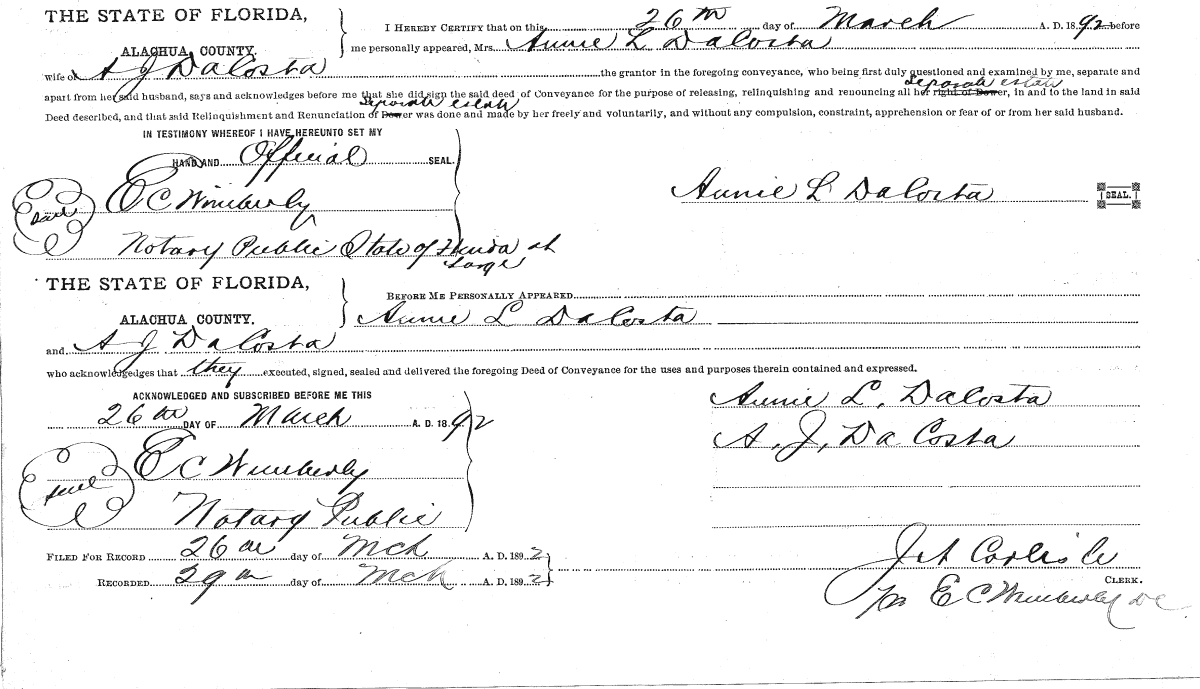 THE STATE OF FLORIDA,
ALACHUA COUNTY.
I HEREBY CERTIFY that on this 26th day of March A. D. 1892 before
me personally appeared, Mrs. Annie L DaCosta
wife of A J DaCosta the grantor in the foregoing conveyance, who being first duly questioned and examined by me, separate and
separate estate
apart from her said husband, says and acknowledges before me that she did sign the said deed of Conveyance for the purpose of releasing, relinquishing and renouncing all her right of Dower, in and to the land in said
separate estate
Deed described, and that said Relinquishment and Renunciation of Dower was done and made by her freely and voluntarily, and without any compulsion, constraint, apprehension or fear of or from her said husband.
IN TESTIMONY WHEREOF I HAVE HEREUNTO SET MY
HAND AND Official SEAL.
Seal E C Wimberly
Annie L DaCosta SEAL.
Notary Public State of Florida at
Large
THE STATE OF FLORIDA,
ALACHUA COUNTY.
BEFORE ME PERSONALLY APPEARED
Annie L DaCosta
and A J DaCosta
who acknowledges that they executed, signed, sealed and delivered the foregoing Deed of Conveyance for the uses and purposes therein contained and expressed.
ACKNOWLEDGED AND SUBSCRIBED BEFORE ME THIS
26th DAY OF March A. D. 1892
Annie L. DaCosta
A. J. Da Costa
Seal E C Wimberly
Notary Public
FILED FOR RECORD 26th day of Mch A. D. 1892
RECORDED 29th day of Mch A. D. 1892
Carlisle
CLERK.
E C Wimberly DC